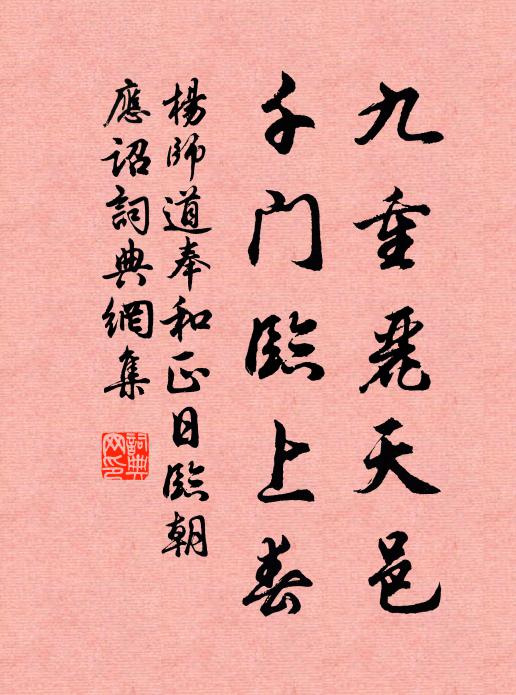 九重麗天邑
千門臨上春
楊師道奉和正日臨朝
應詔詞典網集
詞典
网印